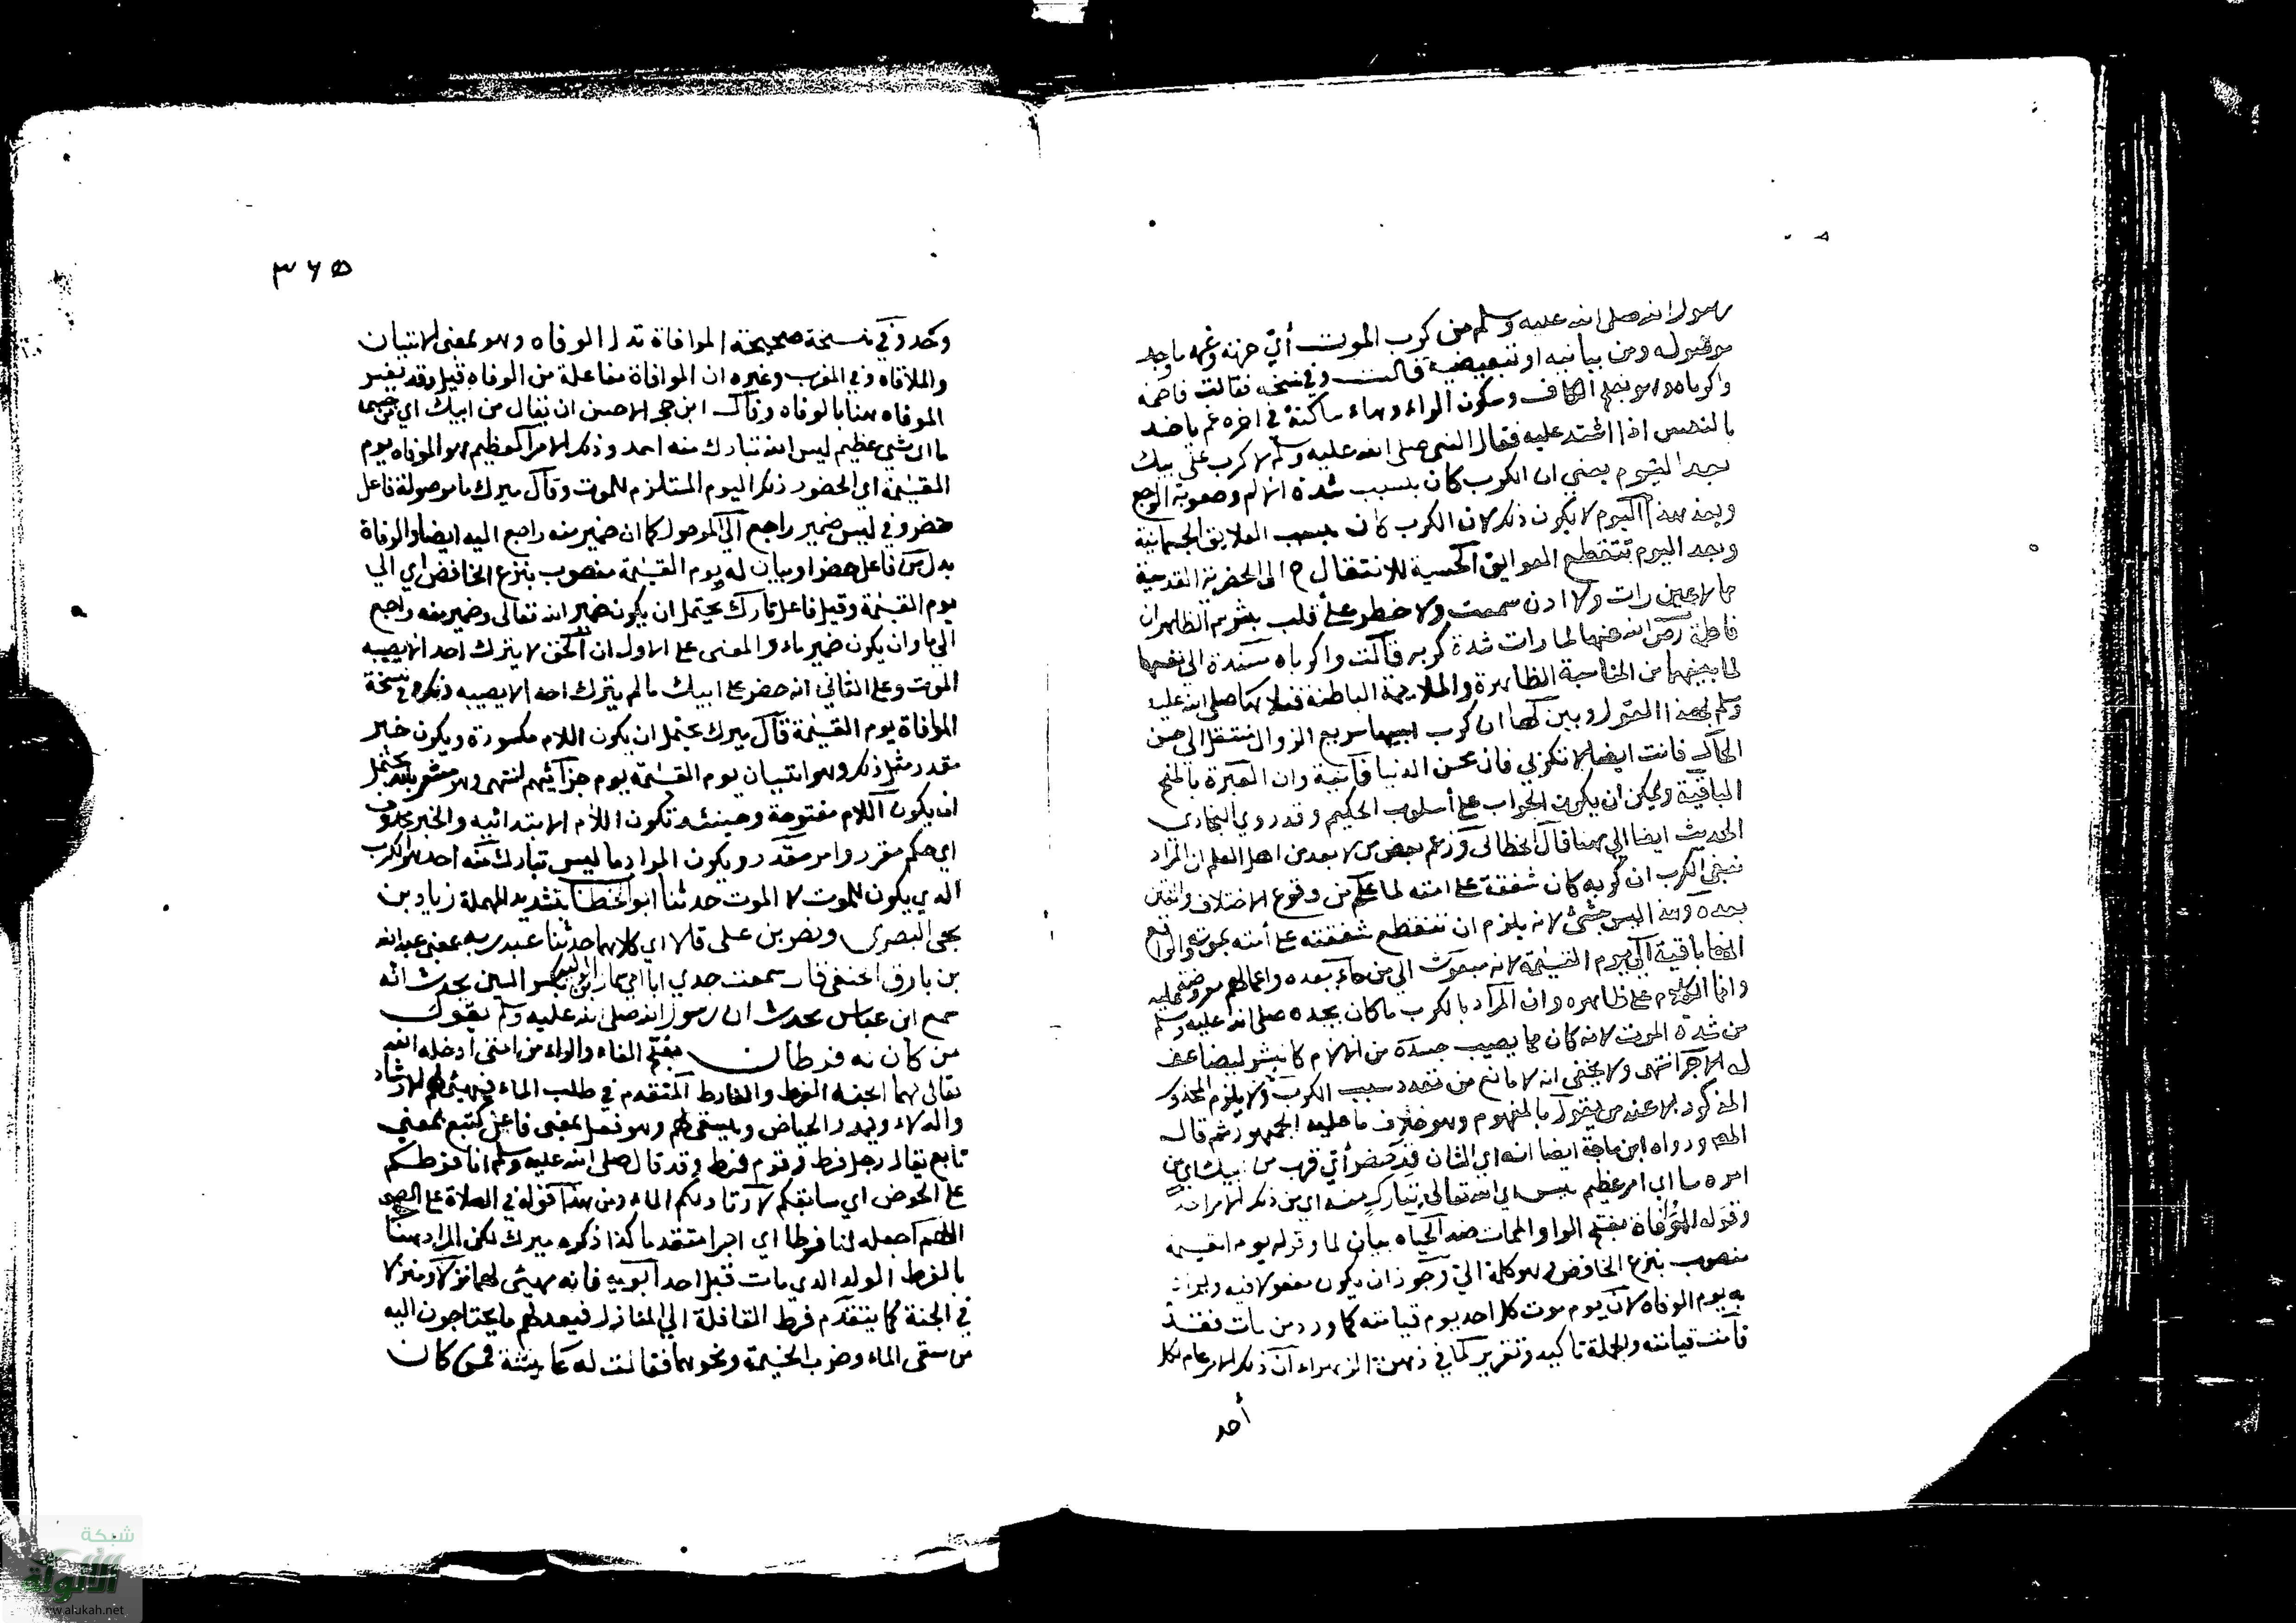 رسول الله صلى الله عليه وسلم من كرب الموت أي حزنه وغمه ما وجد
موصوله ومن بيانيه او تبعيضيه قالت وفي نسخه فقالت فاطمة
واكرباه هو بفتح الكاف وسكون الراء وهاء ساكنة في اخره غم ياخذ
بالنفس اذا اشتد عليه فقال النبي صلى الله عليه وسلم لا كرب على ابيك
بعد اليوم يعني ان الكرب كان بسبب شدة الالم وصعوبة الوجع
وبعد هذا اليوم لا يكون ذلك لان الكرب كان بسبب العلايق الجسمانية
وبعد اليوم تنقطع العوايق الحسية للانتقال ح الى الحضرة القدسية
مما لا عين رات ولا اذن سمعت ولا خطر على قلب بشر ثم الظاهر ان
فاطمة رضي الله عنها لما رات شدة كربه قالت واكرباه مسندة الى نفسها
لما بينهما من المناسبة الظاهرة والملايمة الباطنة فسلاها صلى الله عليه
وسلم بهذا القول وبين لها ان كرب ابيها سريع الزوال منتقل الى حسن
الحال فانت ايضا لا تكربي فان محن الدنيا فانية وان العبرة بالمنح
الباقية ويمكن ان يكون الجواب على أسلوب الحكيم وقد روى البخاري
الحديث ايضا الى هنا قال الخطابي وزعم بعض من لا يعد من اهل العلم ان المراد
بنفي الكرب ان كربه كان شفقة على امته لما علم من وقوع الاختلاف والفتن
بعده وهذا ليس بشئ لانه يلزم ان تنقطع شفقته على أمته بموته والواقع
انها باقية الى يوم القيمة لانه مبعوث الى من جاء بعده واعمالهم معروضة عليه
وانما الكلام على ظاهره وان المراد بالكرب ما كان يجده صلى الله عليه وسلم
من شدة الموت لانه كان مما يصيب جسده من الالام كالبشر ليضاعف
له الاجر انتهى ولا يخفى انه لا مانع من تعدد سبب الكرب ولا يلزم المحذور
المذكور الا عند من يقول بالمفهوم وهو خلاف ما عليه الجمهور ثم قال
المص ورواه ابن ماجة ايضا انه اي الشان قد حضر أي قرب من ابيك اي من
امره ما اي امر عظيم ليس اي الله تعالى بتارك منه اي من ذلك الامر احد
وقوله الوفاة بفتح الواو الممات ضد الحياه بيان لما وقوله يوم القيمة
منصوب بنزع الخافض وهو كلمة الى وجوز ان يكون مفعولا فيه ويراد
به يوم الوفاة لان يوم موت كل احد يوم قيامته كما ورد من مات فقد
قامت قيامته والجملة تاكيد وتقرير لما في ذهن الزهراء ان ذلك الامر عام لكل
أحد
٣٦٥
وحد وفي نسخة صحيحة الموافاة بدل الوفاه وهو بمعنى الاتيان
والملاقاه وفي المغرب وغيره ان الموافاة مفاعلة من الوفاه قيل وقد تفسر
الموفاه هنا بالوفاه وقال ابن حجر الاحسن ان يقال من ابيك اي من جسمه
ما اي شئ عظيم ليس الله بتارك منه احد وذلك الامر العظيم هو الموفاه يوم
القيمة اي الحضور ذلك اليوم المستلزم للموت وقال ميرك ما موصولة فاعل
حضر وفي ليس ضمير راجع الى الموصول كما ان ضمير منه راجع اليه ايضا والوفاة
بدل من فاعل حضر او بيان له ويوم القيمة منصوب بنزع الخافض اي الى
يوم القيمة وقيل فاعل تارك يحتمل ان يكون ضمير الله تعالى وضمير منه راجع
الى ما وان يكون ضمير ما والمعنى على الاول ان الحق لا يترك احد الا يصيبه
الموت وعلى الثاني انه حضر على ابيك ما لم يترك احد الا يصيبه ذلك وفي نسخة
الموافاة يوم القيمة قال ميرك يحتمل ان يكون اللام مكسورة ويكون خبر
مقدر مثل ذلك وهو اتيان يوم القيمة يوم جزائهم انتهى وهو مشعر بانه يحتمل
ان يكون اللام مفتوحة وحينئذ تكون اللام الابتدائيه والخبر محذوف
اي حكم مقرر وامر مقدر ويكون المراد ما ليس بتارك منه احد هو الكرب
الذي يكون للموت لا الموت حدثنا ابو الخطاب بتشديد المهملة زياد بن
يحيى البصري ونصر بن علي قالا اي كلاهما حدثنا عبد ربه بمعنى عبد الله
بن بارق الحنفي قال سمعت جدي ابا امي سماك بن الوليد بكسر السين يحدث انه
سمع ابن عباس يحدث ان رسول الله صلى الله عليه وسلم يقول
من كان له فرطان بفتح الفاء والراء من امتي أدخله الله
تعالى بهما الجنة الفرط والفارط المتقدم في طلب الماء فيهيئ لهم الارشاد
والدلاء ويمدر الحياض ويستقي لهم وهو فعل بمعنى فاعل كتبع بمعنى
تابع يقال رجل فرط وقوم فرط وقد قال صلى الله عليه وسلم انا فرطكم
على الحوض اي سابقكم لارتاد لكم الماء ومن هذا قوله في الصلاة على الصبي
اللهم اجعله لنا فرطا اي اجرا متقدما كذا ذكره ميرك لكن المراد هنا
بالفرط الولد الذي مات قبل احد أبويه فانه يهيئ لهما نزلا ومنزلا
في الجنة كما يتقدم فرط القافلة الى المنازل فيعد لهم ما يحتاجون اليه
من سقى الماء وضرب الخيمة ونحوهما فقالت له عايشة فمن كان
شبكة
الألوكة
www.alukah.net